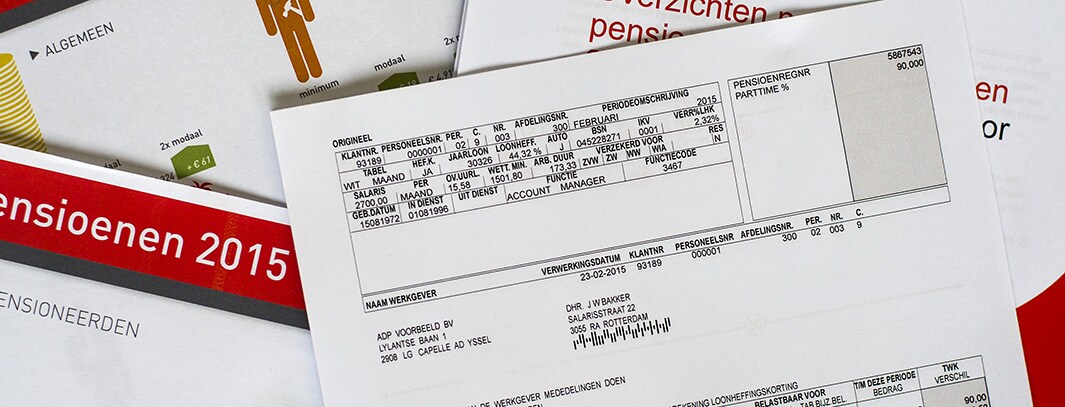 ▶ ALGEMEEN
minimum
modaal
2x m
€ 4,91
2x modaal
+ € 61
224
ensioenen 2015
ENSIONEERDEN
pensio
en
or
ORIGINEEL
PERIODEOMSCHRIJVING
KLANTNR. PERSONEELSNR. PER. C. NR. AFDELINGSNR.
93189 0000001 02 9 003 300 FEBRUARI 2015
TABEL HEF.K. JAARLOON LOONHEFF. AUTO BSN IKV VERR%LHK
WIT MAAND JA 30326 44,32 % J 045228271 0001 2,32%
SALARIS PER OV.UURL. WETT. MIN. ARB. DUUR VERZEKERD VOOR RES
2700,00 MAAND 15,58 1501,80 173,33 ZVW ZW WW WIA N
GEB.DATUM IN DIENST UIT DIENST FUNCTIE FUNCTIECODE
15081972 01081996 ACCOUNT MANAGER 3467
PENSIOENREGNR 5867543
PARTTIME % 90,000
VERWERKINGSDATUM KLANTNR PERSONEELSNR AFDELINGSNR. PER. NR. C.
23-02-2015 93189 000001 300 02 003 9
NAAM WERKGEVER
ADP VOORBEELD BV
LYLANTSE BAAN 1
2908 LG CAPELLE AD YSSEL
DHR. J W BAKKER
SALARISSTRAAT 22
3055 RA ROTTERDAM
DE WERKGEVER MEDEDELINGEN DOEN
REKENING LOONHEFFINGSKORTING
BELASTBAAR VOOR T/M DEZE PERIODE TWK
TAB BIJZ BEL. BEDRAG VERSCHIL
90,00